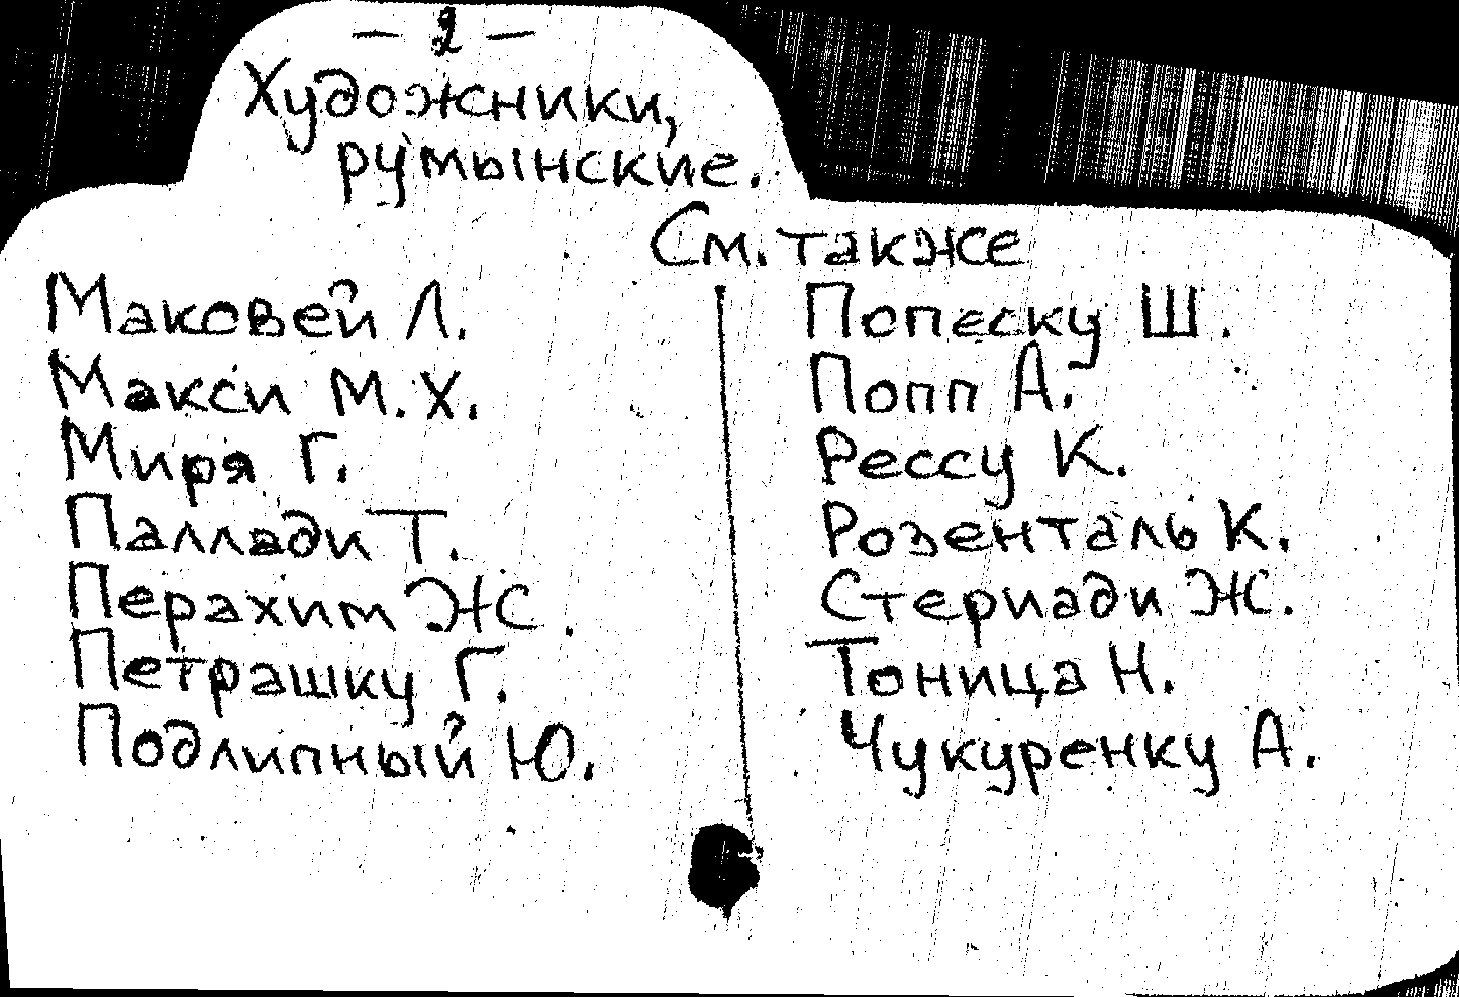 — 2 —
Художники,
румынские.
См. также
Маковей Л.
Макси М. Х.
Миря Г.
Паллади Т.
Перахим Ж.
Петрашку Г.
Подлипный Ю.
Попеску Ш.
Попп А.
Рессу К.
Розенталь К.
Стериади Ж.
Тоница Н.
Чукуренку А.